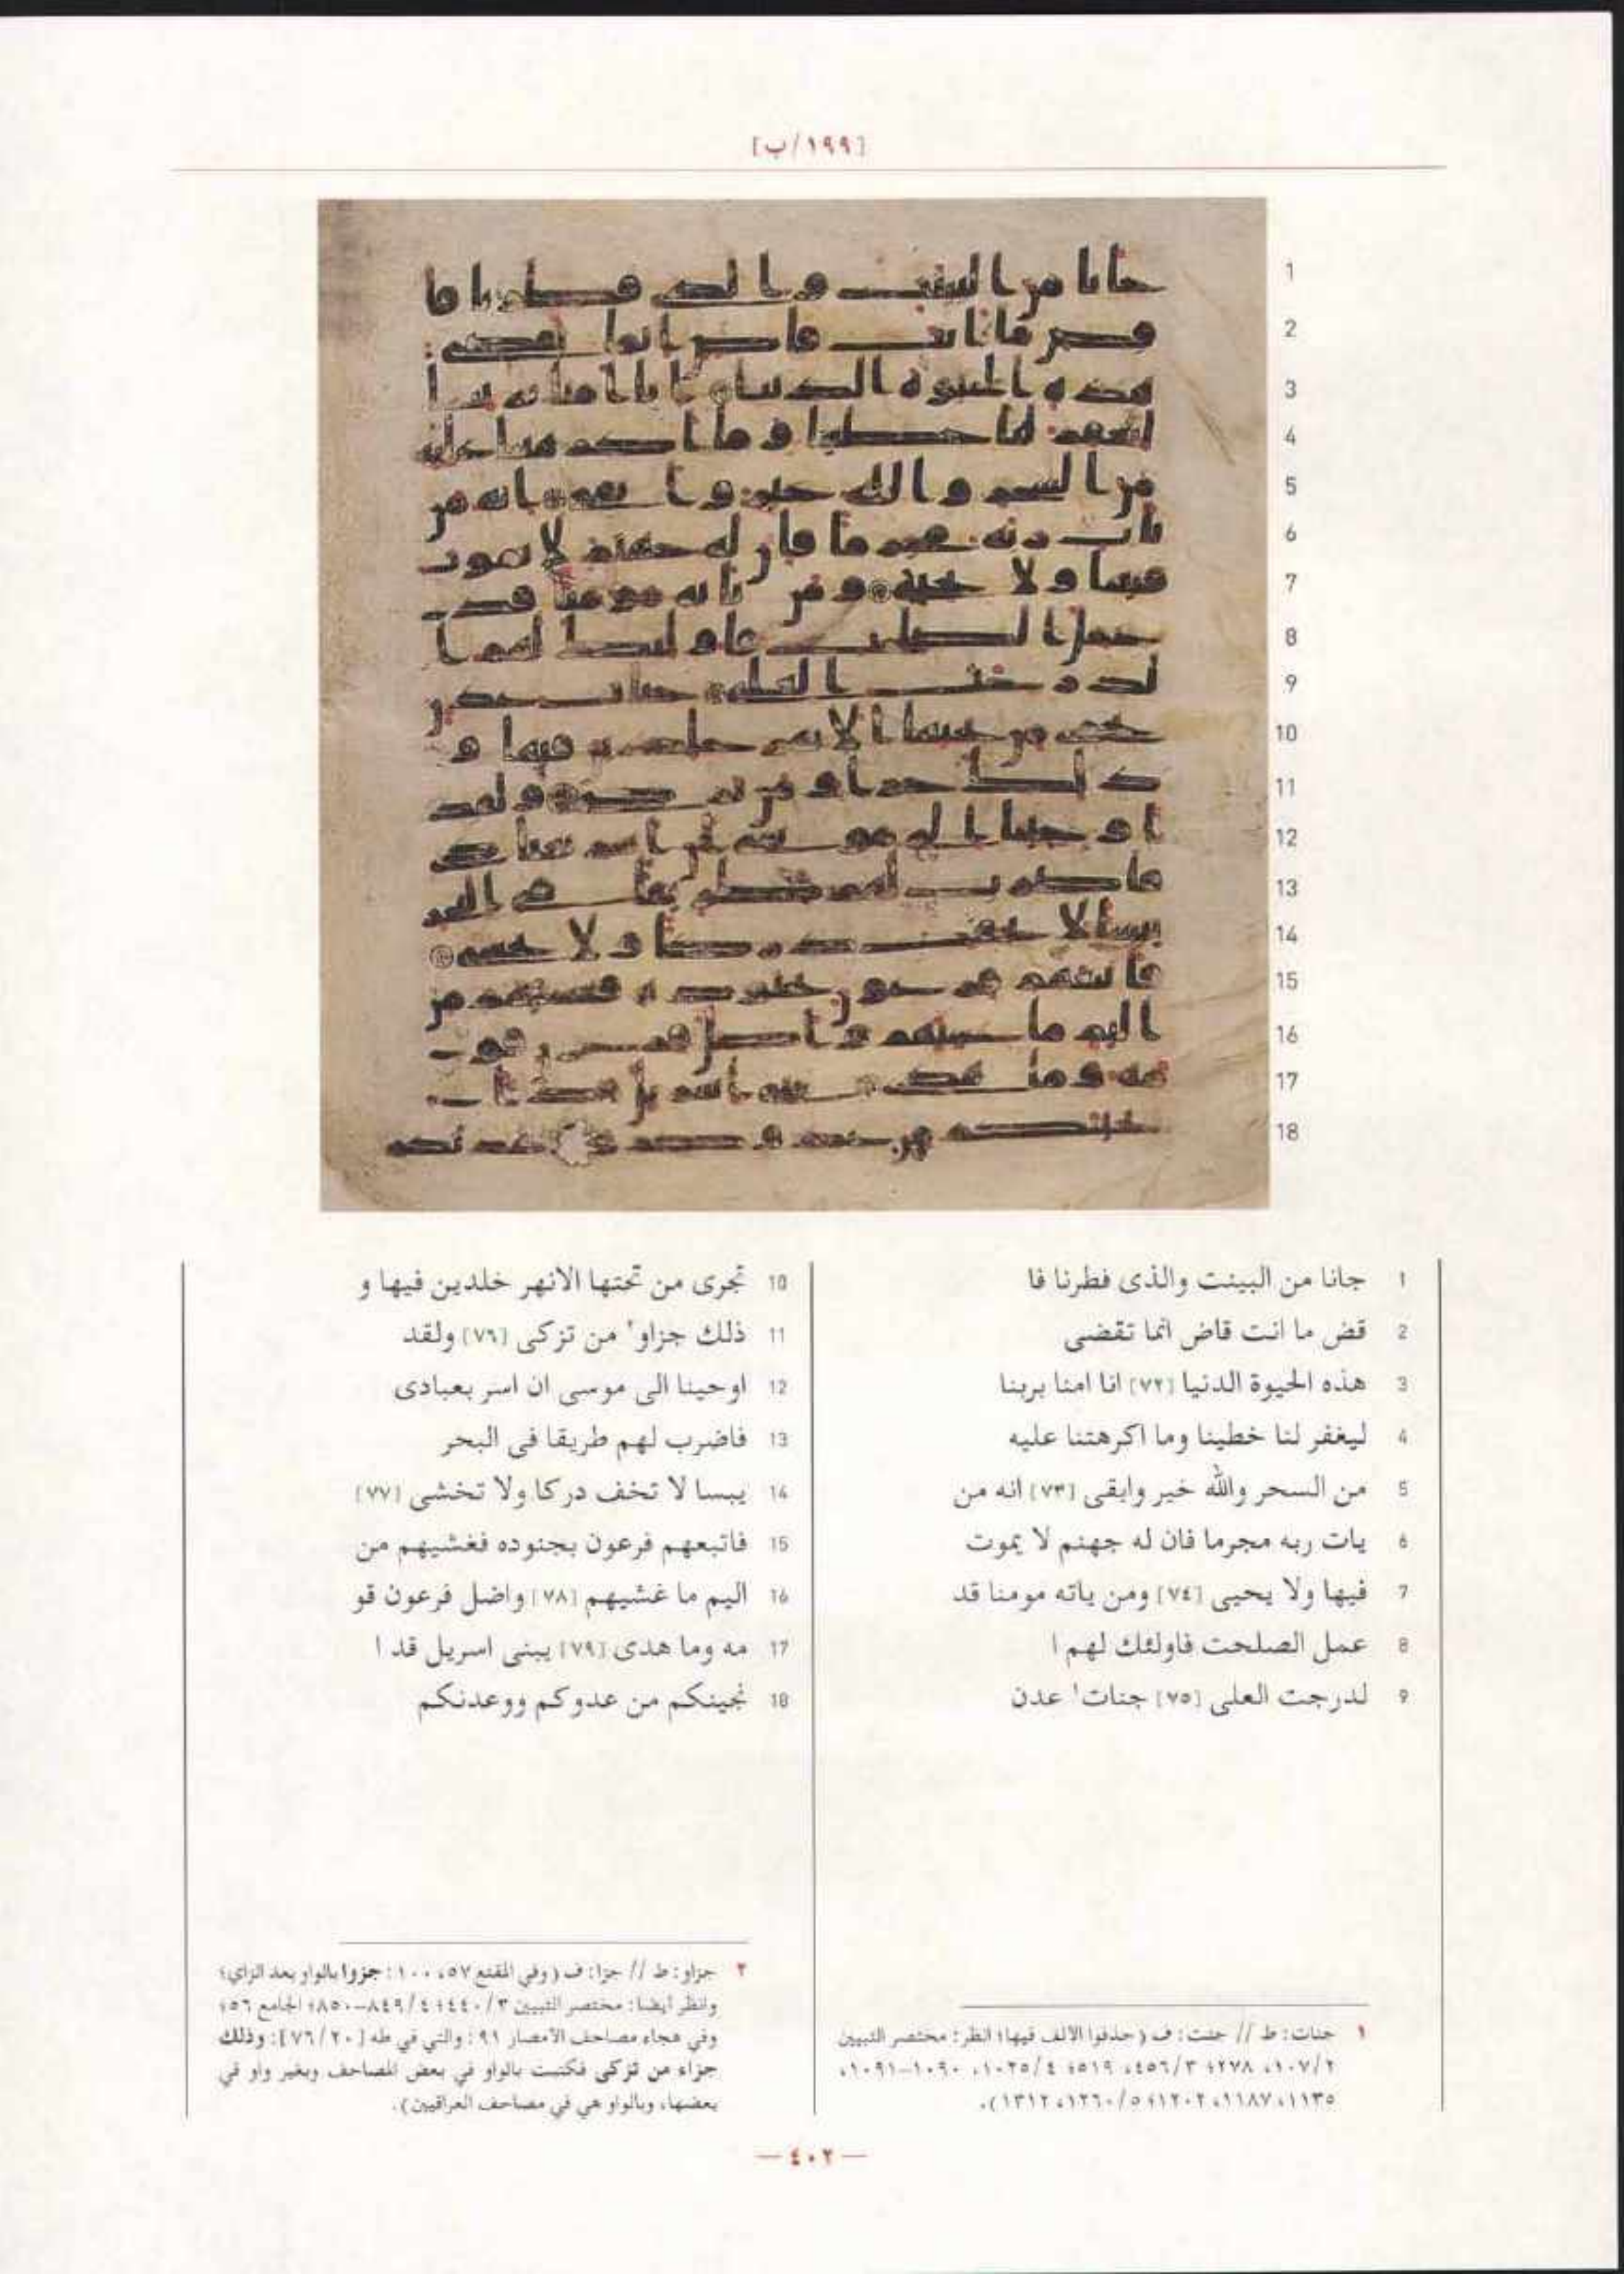 [١٩٩/ب]
1 جانا من البينت والذى فطرنا فا
2 قض ما انت قاض انما تقضى
3 هذه الحيوة الدنيا [٧٢] انا امنا بربنا
4 ليغفر لنا خطينا وما اكرهتنا عليه
5 من السحر والله خير وابقى [٧٣] انه من
6 يات ربه مجرما فان له جهنم لا يموت
7 فيها ولا يحيى [٧٤] ومن ياته مومنا قد
8 عمل الصلحت فاولئك لهم ا
9 لدرجت العلى [٧٥] جنات١ عدن
10 تجرى من تحتها الانهر خلدين فيها و
11 ذلك جزاو٢ من تزكى [٧٦] ولقد
12 اوحينا الى موسى ان اسر بعبادى
13 فاضرب لهم طريقا فى البحر
14 يبسا لا تخف دركا ولا تخشى [٧٧]
15 فاتبعهم فرعون بجنوده فغشيهم من
16 اليم ما غشيهم [٧٨] واضل فرعون قو
17 مه وما هدى [٧٩] يبنى اسريل قد ا
18 نجينكم من عدوكم ووعدنكم
١ جنات: ط // جنت: ف (حذفوا الالف فيها؛ انظر: مختصر التبيين
٢/١٠٧، ٢٧٨؛ ٣/٤٥٦، ٥١٩؛ ٤/١٠٢٥، ١٠٩٠-١٠٩١،
١١٣٥، ١١٨٧، ١٢٠٢؛ ٥/١٢٦٠، ١٣١٢).
٢ جزاو: ط // جزا: ف (وفي المقنع ٥٧، ١٠٠: جزوا بالواو بعد الزاي؛
وانظر أيضا: مختصر التبيين ٣/٤٤٠؛ ٤/٨٤٩-٨٥٠؛ الجامع ٥٦؛
وفي هجاء مصاحف الأمصار ٩١: والتي في طه [٢٠/٧٦]: وذلك
جزاء من تزكى فكتبت بالواو في بعض المصاحف وبغير واو في
بعضها، وبالواو هي في مصاحف العراقيين).
— ٤٠٢ —